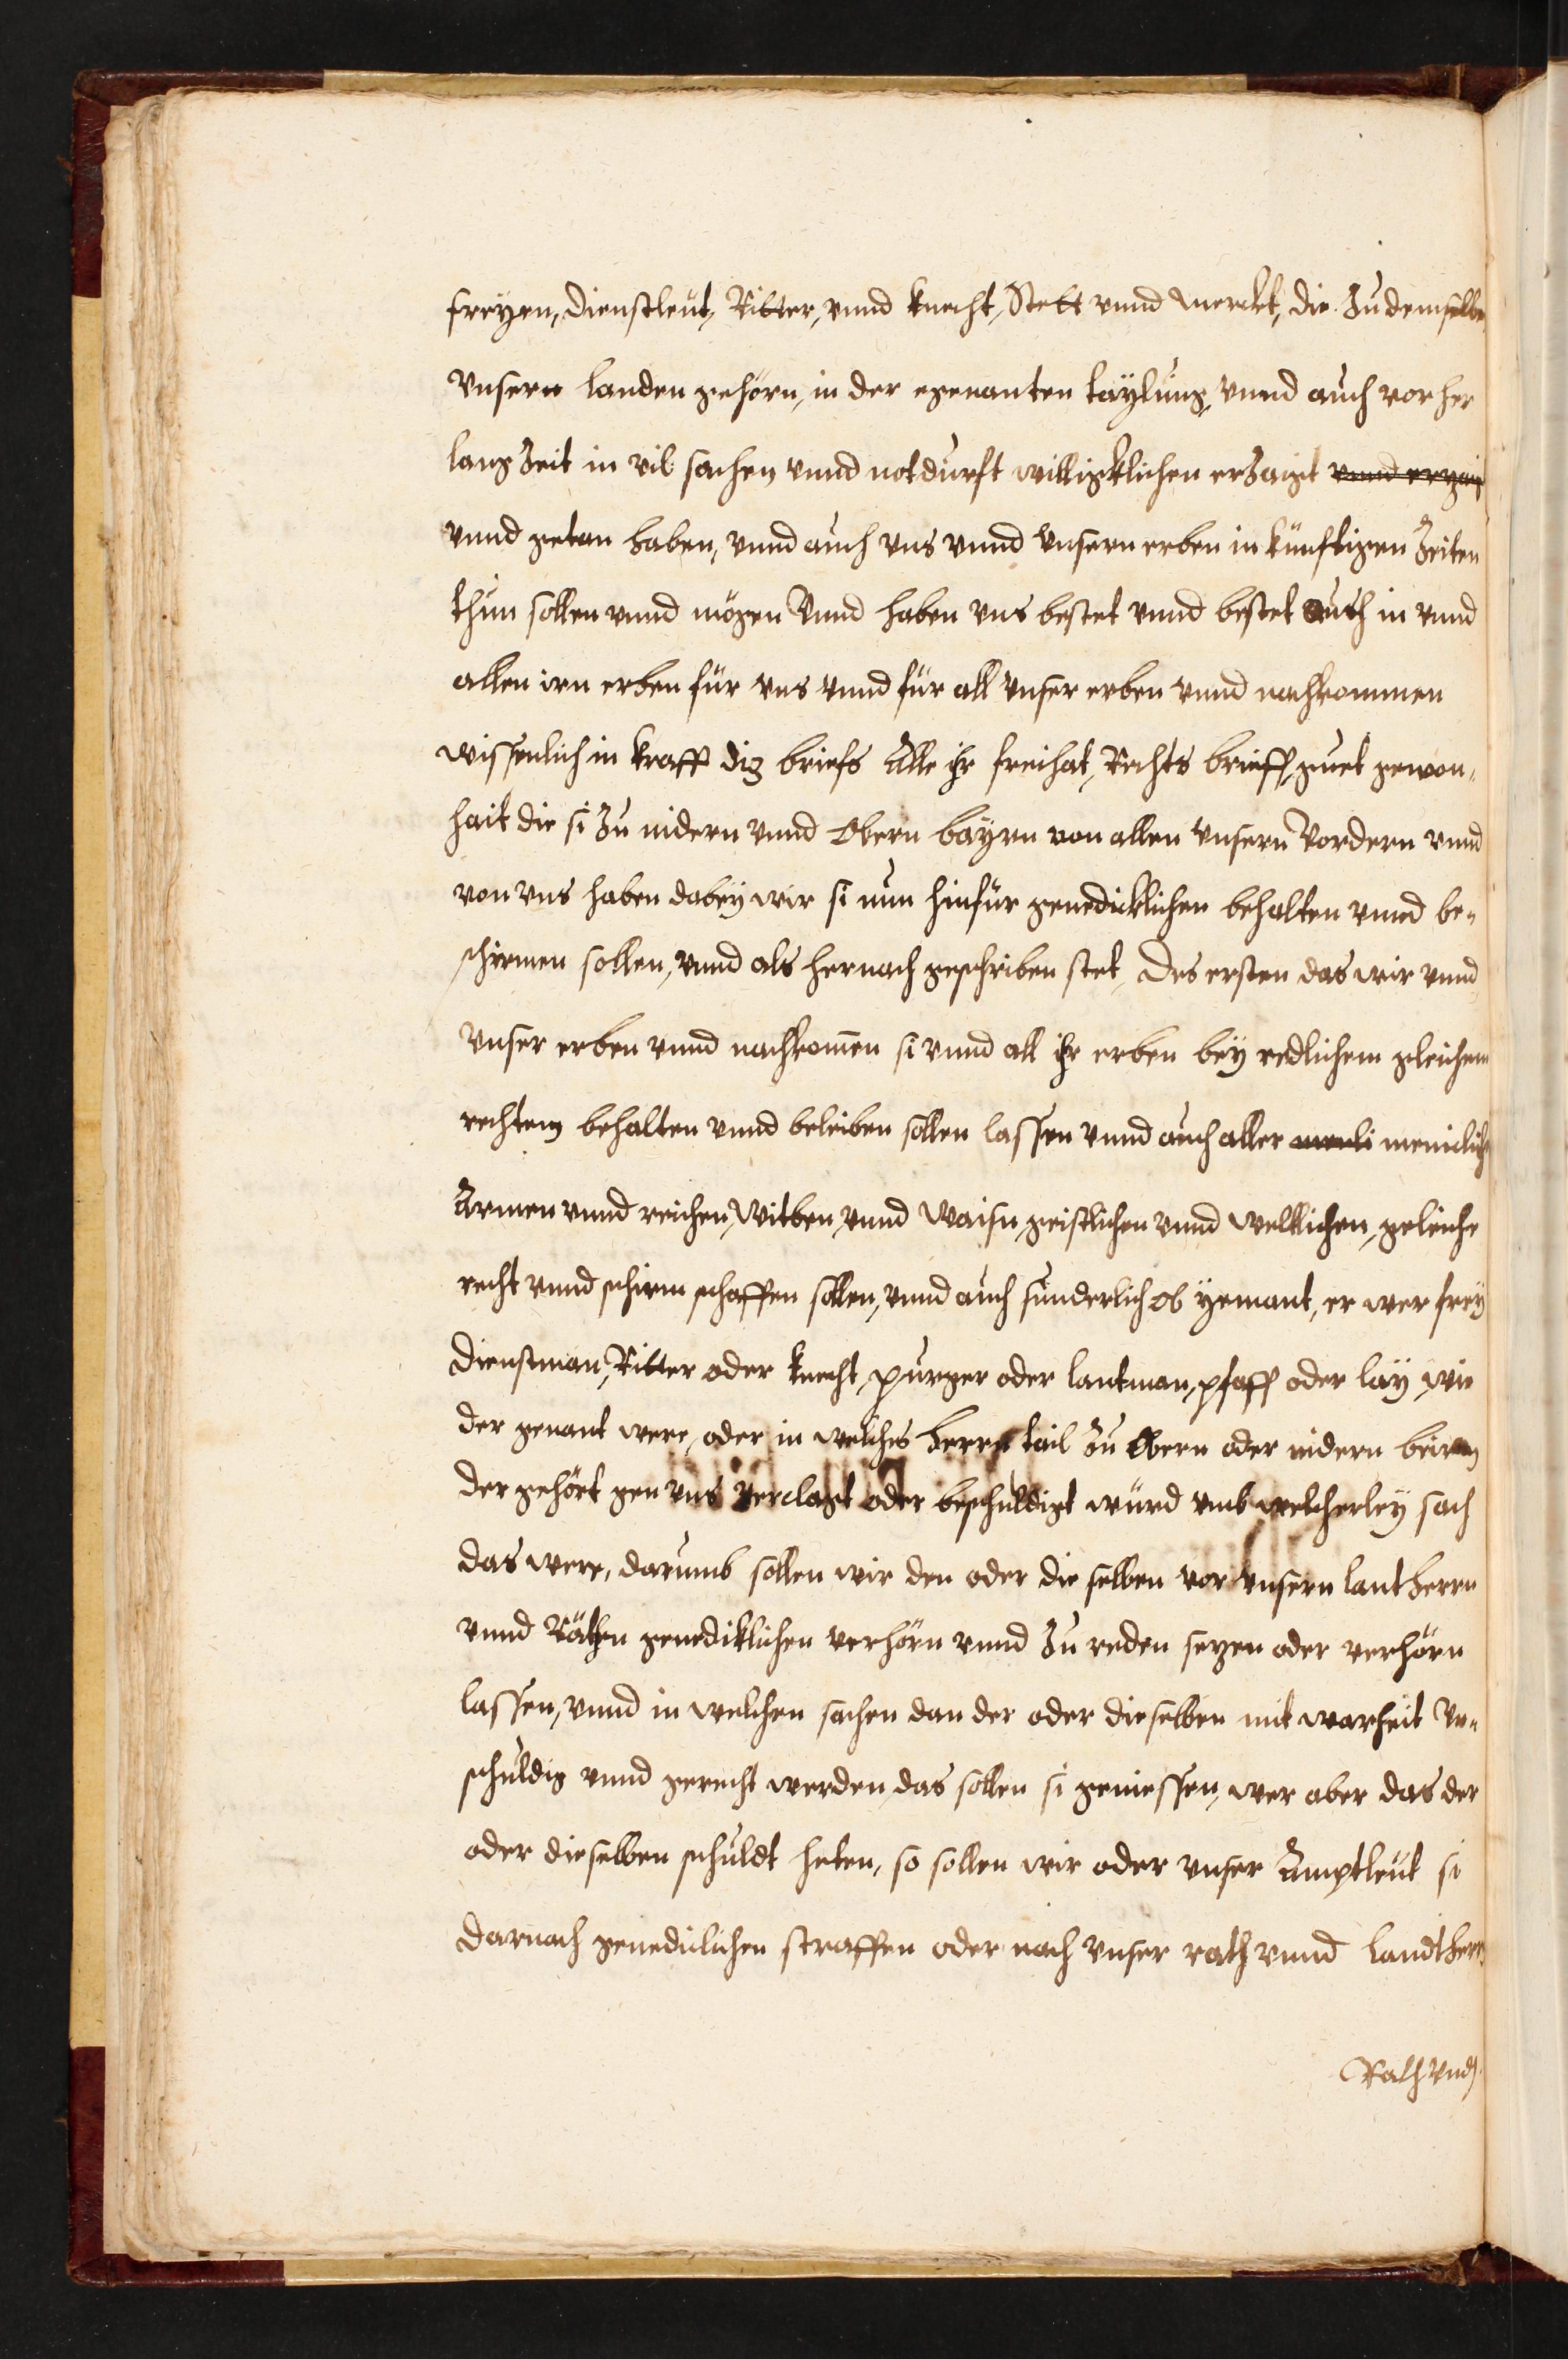 freyen, dienstleut, Ritter, vnnd knecht, Stett vnnd Merckt, die Zu demselbe
vnsern landen gehörn, in der egenanten taÿlung, vnnd auch vorher
lang Zeit in vil sachen vnnd notdurft willigklichen erZaigt vnnd erzaig
vnnd getan haben, vnnd auch vns vnnd vnsern erben in künftigen Zeiten
thun sollen vnnd mögen Vnnd haben vns bestet vnnd bestet auch in vnnd
allen irn erben für vns vnnd für all vnser erben vnnd nachkommen
wissenlich in krafft diz briefs Alle ihr freihat, Rechts brieff, guet gewon„
hait die si Zu nidern vnnd Obern bayrn von allen vnsern Vordern vnnd
von vns haben dabeÿ wir si nun hinfür genedicklichen behalten vnnd be„
schirmen sollen, vnnd als hernach geschriben stet, Des ersten das wir vnnd
vnser erben vnnd nachkom̄en si vnnd all ihr erben beÿ redlichem gleichem
rechtem behalten vnnd beleiben sollen lassen vnnd auch aller menli meniclich
Armen vnnd reichen, Witben, vnnd Waisn, geistlichen vnnd weltlichen, geleichs
recht vnnd schirm schaffen sollen, vnnd auch sunderlich ob ÿemant, er wer freÿ
dienstman, Ritter oder knecht, purger oder lantman, pfaff oder laÿ, wie
der genant were, oder in welches herrn tail Zu Obern oder nidern beirn
der gehört gen vns verclagt oder beschuldigt wurd vmb welcherleÿ sach
das were, darumb sollen wir den oder die selben vor vnsern lantherrn
vnnd Räthen genediklichen verhörn vnnd Zu reden sezen oder verhörn
lassen, vnnd in welchen sachen dan der oder dieselben mit warheit vn„
schuldig vnnd gerecht werden, das sollen si geniessen, wer aber das der
oder dieselben schuldt heten, so sollen wir oder vnser Amptleut si
darnach genediclichen straffen oder nach vnser rath vnnd Landtherr
Rath vnd